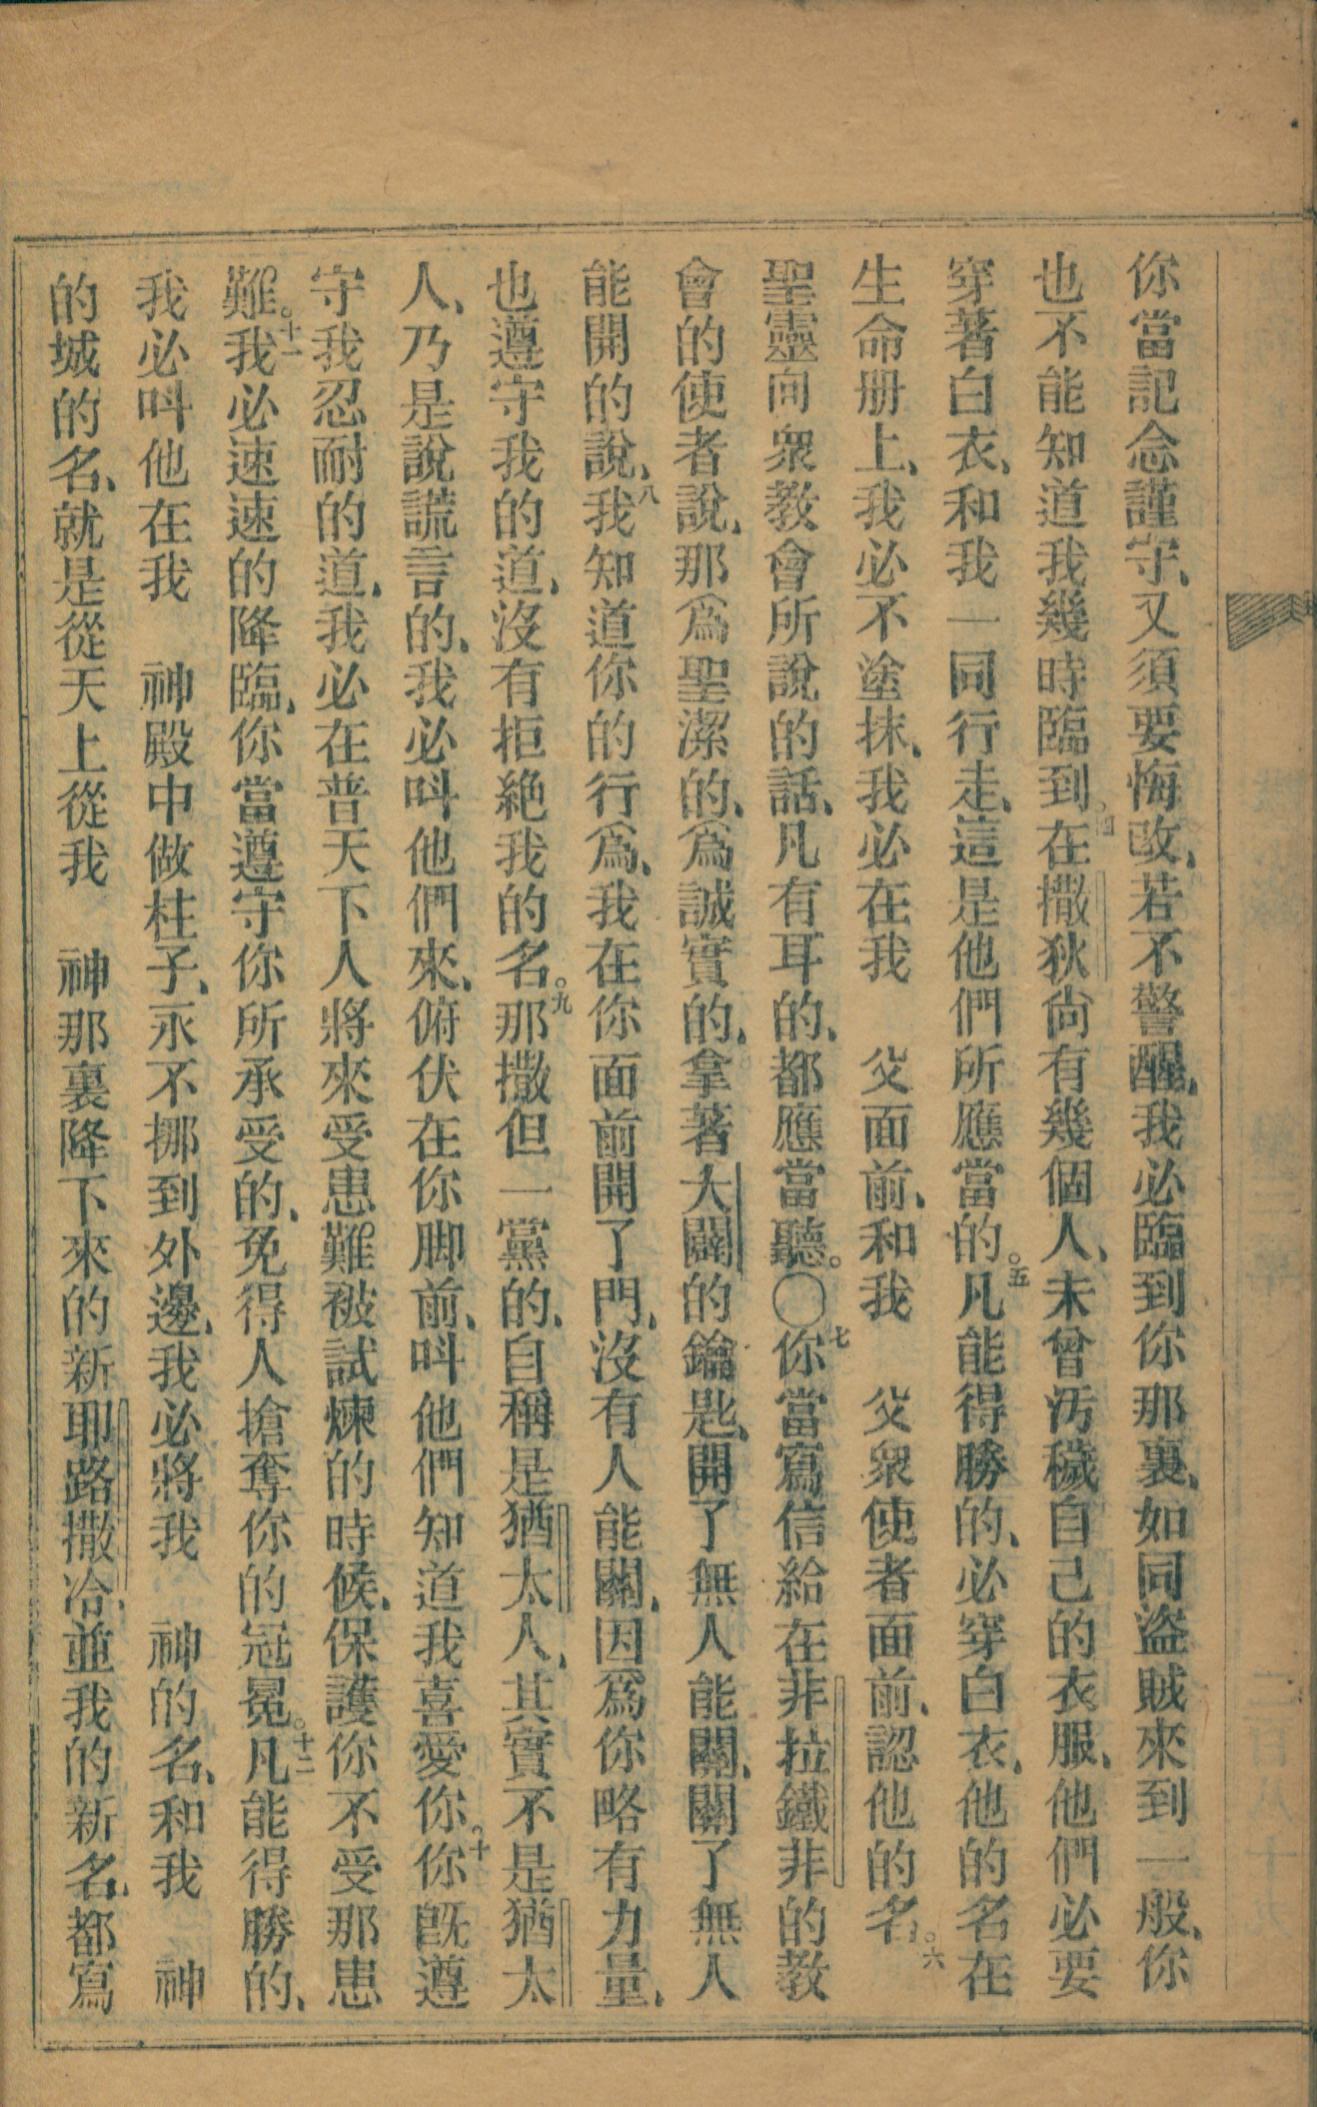 你當記念謹守、又須要悔改、若不警醒、我必臨到你那裏、如同盜賊來到一般、你
也不能知道我幾時臨到。四在撒狄尙有幾個人、未曾汚穢自己的衣服、他們必要
穿著白衣、和我一同行走、這是他們所應當的。五凡能得勝的、必穿白衣、他的名在
生命册上、我必不塗抹、我必在我　父面前、和我　父衆使者面前、認他的名。六
聖靈向衆教會所說的話、凡有耳的、都應當聽。〇七你當寫信給在非拉鐵非的教
會的使者說、那爲聖潔的、爲誠實的、拿著大闢的鑰匙、開了無人能關、關了無人
能開的說、八我知道你的行爲、我在你面前開了門、沒有人能關、因爲你略有力量、
也遵守我的道、沒有拒絶我的名。九那撒但一黨的、自稱是猶太人、其實不是猶太
人、乃是說謊言的、我必呌他們來、俯伏在你脚前、呌他們知道我喜愛你。十你旣遵
守我忍耐的道、我必在普天下人將來受患難被試煉的時候、保護你不受那患
難。十一我必速速的降臨、你當遵守你所承受的、免得人搶奪你的冠冕。十二凡能得勝的、
我必呌他在我　神殿中做柱子、永不挪到外邊、我必將我　神的名、和我　神
的城的名、就是從天上從我　神那裏降下來的新耶路撒冷、並我的新名、都寫